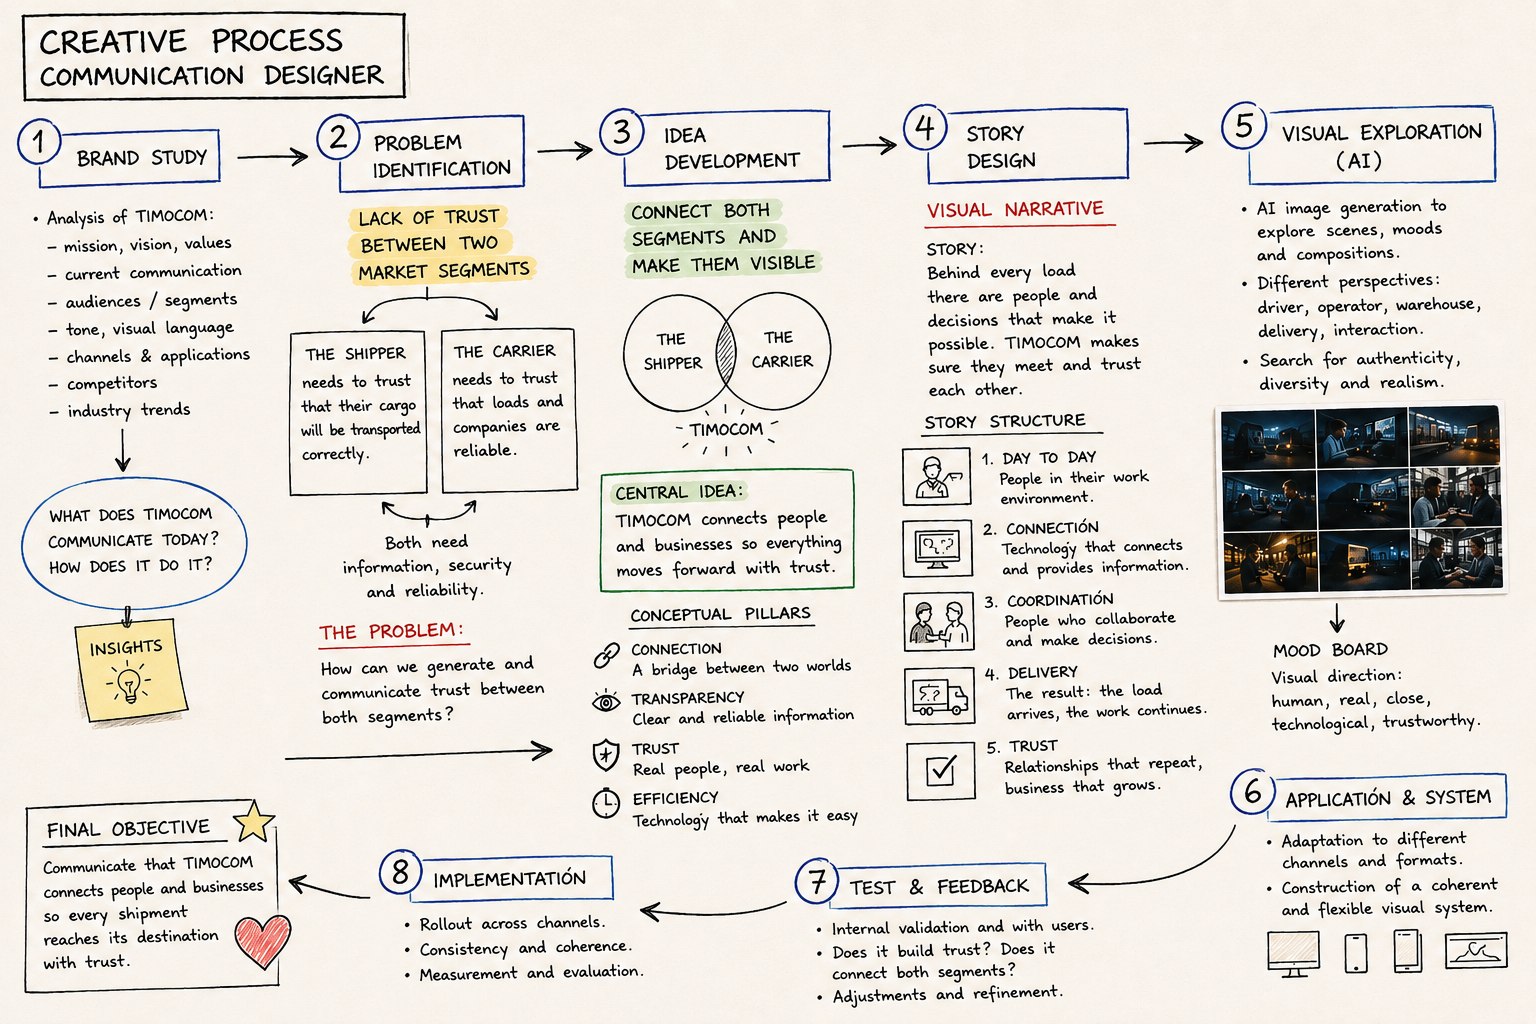 CREATIVE PROCESS
COMMUNICATION DESIGNER
1
BRAND STUDY
• Analysis of TIMOCOM:
– mission, vision, values
– current communication
– audiences / segments
– tone, visual language
– channels & applications
– competitors
– industry trends
WHAT DOES TIMOCOM
COMMUNICATE TODAY?
HOW DOES IT DO IT?
INSIGHTS
2
PROBLEM
IDENTIFICATION
LACK OF TRUST
BETWEEN TWO
MARKET SEGMENTS
THE SHIPPER
needs to trust
that their cargo
will be transported
correctly.
THE CARRIER
needs to trust
that loads and
companies are
reliable.
Both need
information, security
and reliability.
THE PROBLEM:
How can we generate and
communicate trust between
both segments?
3
IDEA
DEVELOPMENT
CONNECT BOTH
SEGMENTS AND
MAKE THEM VISIBLE
THE
SHIPPER
THE
CARRIER
TIMOCOM
CENTRAL IDEA:
TIMOCOM connects people
and businesses so everything
moves forward with trust.
CONCEPTUAL PILLARS
CONNECTION
A bridge between two worlds
TRANSPARENCY
Clear and reliable information
TRUST
Real people, real work
EFFICIENCY
Technology that makes it easy
4
STORY
DESIGN
VISUAL NARRATIVE
STORY:
Behind every load
there are people and
decisions that make it
possible. TIMOCOM makes
sure they meet and trust
each other.
STORY STRUCTURE
1. DAY TO DAY
People in their work
environment.
2. CONNECTIÓN
Technology that connects
and provides information.
3. COORDINATIÓN
People who collaborate
and make decisions.
4. DELIVERY
The result: the load
arrives, the work continues.
5. TRUST
Relationships that repeat,
business that grows.
5
VISUAL EXPLORATION
(AI)
• AI image generation to
explore scenes, moods
and compositions.
• Different perspectives:
driver, operator, warehouse,
delivery, interaction.
• Search for authenticity,
diversity and realism.
MOOD BOARD
Visual direction:
human, real, close,
technological, trustworthy.
6
APPLICATIÓN & SYSTEM
• Adaptation to different
channels and formats.
• Construction of a coherent
and flexible visual system.
7
TEST & FEEDBACK
• Internal validation and with users.
• Does it build trust? Does it
connect both segments?
• Adjustments and refinement.
8
IMPLEMENTATIÓN
• Rollout across channels.
• Consistency and coherence.
• Measurement and evaluation.
FINAL OBJECTIVE
Communicate that TIMOCOM
connects people and businesses
so every shipment
reaches its destination
with trust.